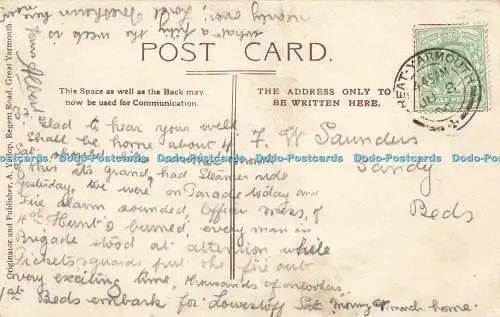 nearly over, Good Freedham boy mi
what a pity the week is
yours
Albert
POST CARD.
This Space as well as the Back may
now be used for Communication.
THE ADDRESS ONLY TO
BE WRITTEN HERE.
GREAT-YARMOUTH
Originator and Publisher, A. Yallop, Regent Road, Great Yarmouth.
Glad to hear your well
Shall be home about 4
Sat. should
this its grand, had Steamer ride
yesterday, we were on Parade today and
Fire alarm sounded, Officer mess, of
4th Hunt's burned, every man in
Brigade stood at attention while
Pickets & guards put the fire out
very exciting time, thousands of onlookers
1st Beds embark for Lowestoft Sat morng & march home.
F. W Saunders
Sandy
Beds
Dodo-Postcards Dodo-Postcards Dodo-Postcards Dodo-Postcards